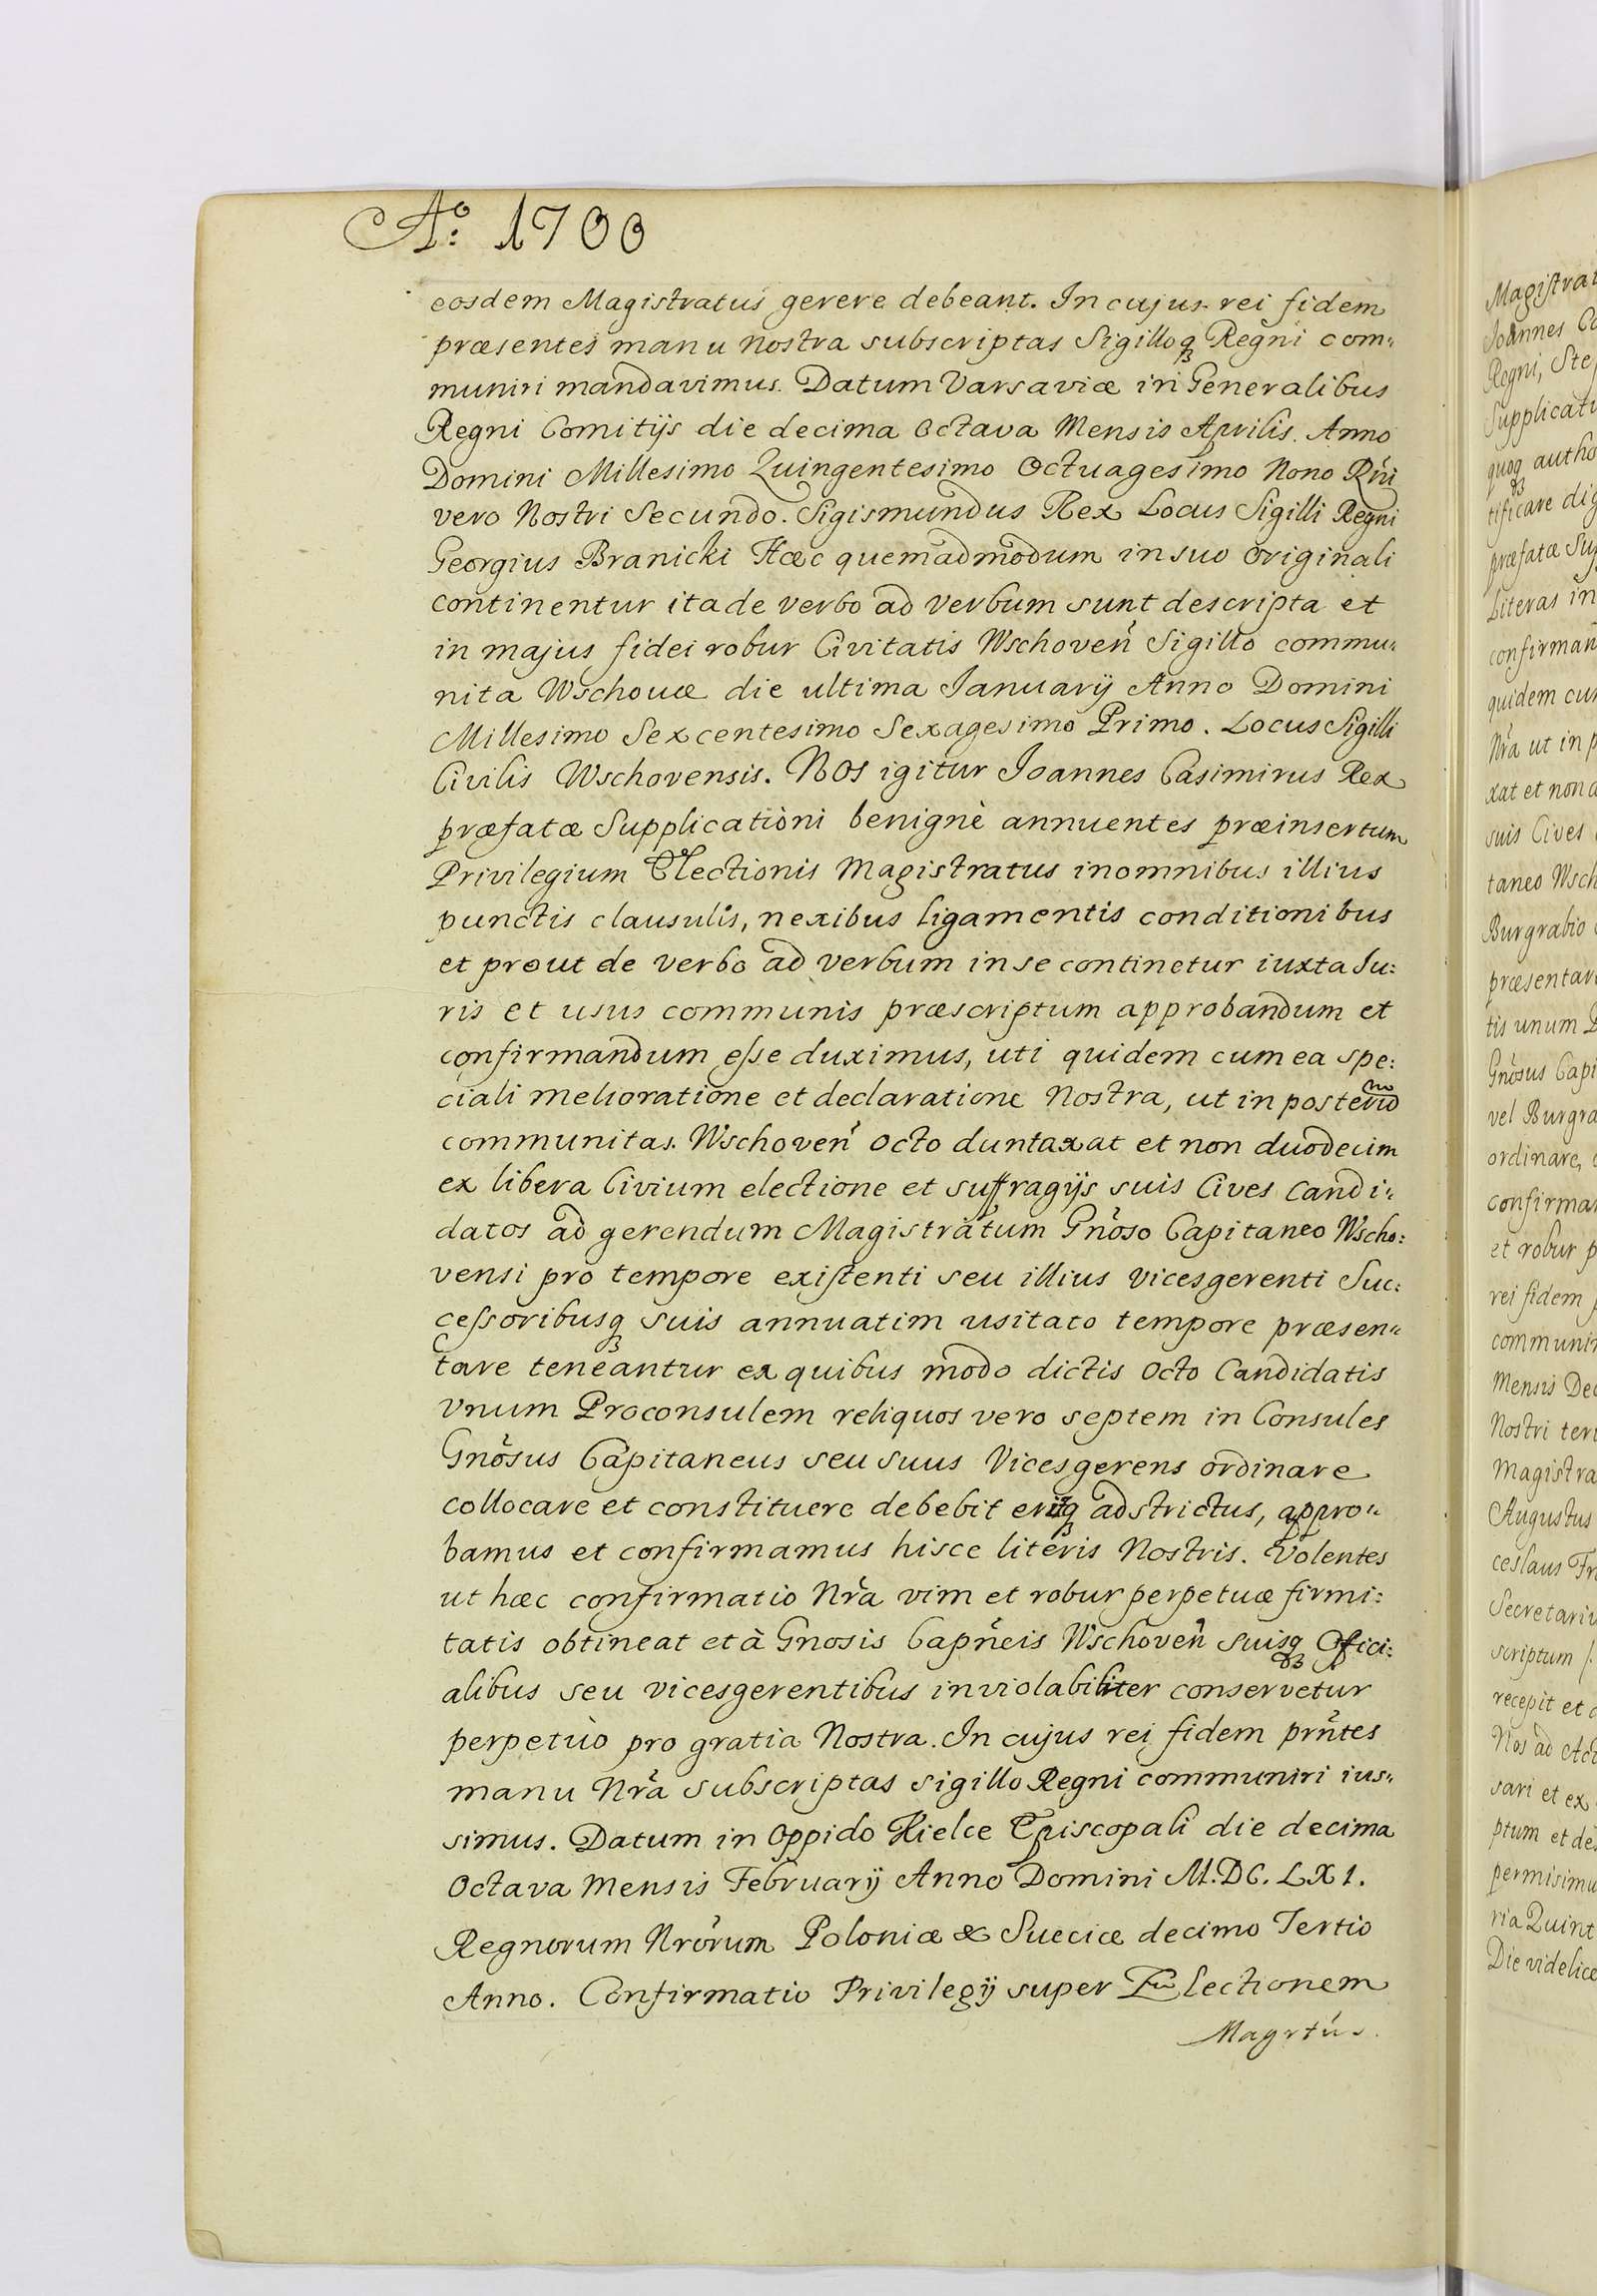 Ao: 1700
eosdem Magistratus gerere debeant. In cujus rei fidem
præsentes manu nostra subscriptas Sigilloq Regni com„
muniri mandavimus. Datum Varsaviæ in Generalibus
Regni Comitijs die decima Octava Mensis Aprilis. Anno
Domini Millesimo Quingentesimo Octuagesimo Nono Rñi
vero Nostri Secundo. Sigismundus Rex Locus Sigilli Regni
Georgius Branicki Hæc quemadmodum in suo Originali
continentur ita de verbo ad verbum sunt descripta et
in majus fidei robur Civitatis Wschoveñ Sigillo commu„
nita Wschovæ die ultima Ianuarij Anno Domini
Millesimo Sexcentesimo Sexagesimo Primo. Locus Sigilli
Civilis Wschovensis. Nos igitur Joannes Casimirus Rex
præfatæ Supplicationi benignè annuentes præinsertum
Privilegium Electionis Magistratus in omnibus illius
punctis clausulis, nexibus ligamentis conditionibus
et prout de verbo ad verbum in se continetur iuxta Ju:
ris et usus communis præscriptum approbandum et
confirmandum esse duximus, uti quidem cum ea spe:
ciali melioratione et declaratione Nostra, ut in posterũ
communitas Wschoveñ octo duntaxat et non duodecim
ex libera Civium electione et suffragijs suis Cives Candi„
datos ad gerendum Magistratum Gñoso Capitaneo Wscho:
vensi pro tempore existenti seu illius vicesgerenti Suc:
cessoribusq suis annuatim usitato tempore præsen„
tare teneantur ex quibus modo dictis octo Candidatis
Vnum Proconsulem reliquos vero septem in Consules
Gñosus Capitaneus seu suus Vicesgerens ordinare
collocare et constituere debebit eritq adstrictus, appro„
bamus et confirmamus hisce literis Nostris. Volentes
ut hæc confirmatio Nr̃a vim et robur perpetuæ firmi:
tatis obtineat et à Gnosis Capñeis Wschoveñ suisq Offici:
alibus seu vicesgerentibus inviolabiliter conservetur
perpetuò pro gratia Nostra. In cujus rei fidem prñtes
manu Nr̃a subscriptas sigillo Regni communiri ius„
simus. Datum in Oppido Kielce Episcopali die decima
Octava Mensis Februarij Anno Domini M.DC.LX1.
Regnorum Nr̃orum Poloniæ & Sueciæ decimo Tertio
Anno. Confirmatio Privilegij super Electionem
Magrtus.
Joannes
Regni, Ste
Supplicati
quoq autho
tificare dig
præfatæ Su
Literas in
confirman
quidem cu
Nr̃a ut in p
xat et non
suis Cives
taneo Wsch
Burgrabio
præsentar
tis unum
Gñosus Capi
vel Burgra
ordinare,
confirma
et robur p
rei fidem
communi
Mensis Dec
Nostri ter
Magistra
Augustus
ceslaus Fr
Secretariu
scriptum
recepit et
Nos ad Act
sari et ex
ptum et de
permisimu
ria Quint
Die videlice